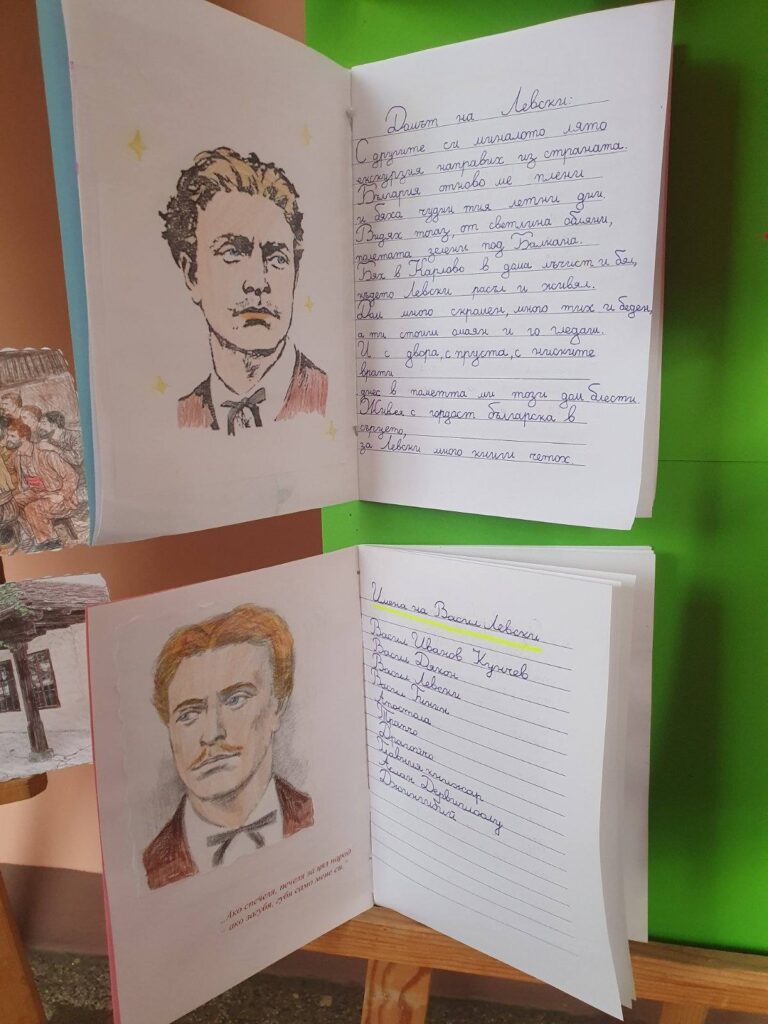 Домът на Левски:
С другите си миналото лято
екскурзия направих из страната.
България отново ме плени
и бяха чудни тия летни дни.
Видях тогаз, от светлина обляни,
полетата зелени под Балкана.
Бях в Карлово в дома лъчист и бял,
където Левски расъл и живял.
Дом много скромен, много тих и беден,
а ти стоиш омаян и го гледаш.
И с двора, с пруста, с ниските
врати
днес в паметта ми този дом блести.
Живея с гордост българска в
сърцето,
за Левски много книги четох.
Имена на Васил Левски
Васил Иванов Кунчев
Васил Дякон
Васил Левски
Васил
Апостола
Драгойчо
Главния книжар
Аслан Дервишоолу
Джингиби
„Ако спечеля, печеля за цял народ
ако загубя, губя само мене си.“